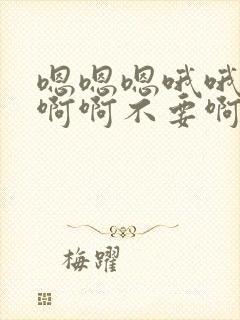 嗯嗯嗯哦哦
啊啊不要啊
梅躍